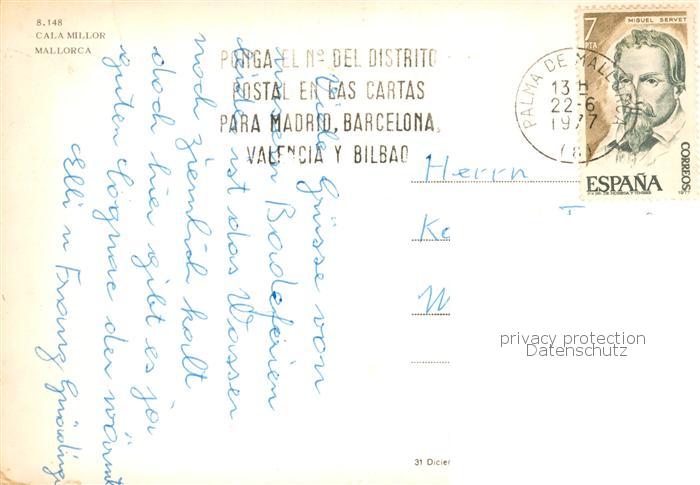 8.148
CALA MILLOR
MALLORCA
PONGA EL Nº DEL DISTRITO
POSTAL EN LAS CARTAS
PARA MADRID, BARCELONA,
VALENCIA Y BILBAO
PALMA DE MALLORCA
13 H
22-6
1977
(8)
7
PTA
MIGUEL SERVET
CORREOS
ESPAÑA
1977
Viele Grüsse von
unseren Badeferien
ist das Wasser
noch ziemlich kalt
doch hier gibt es ja
guten Cognac der wärmt
Elli u Franz
Herrn
Ko
W
31 Dicie
privacy protection
Datenschutz